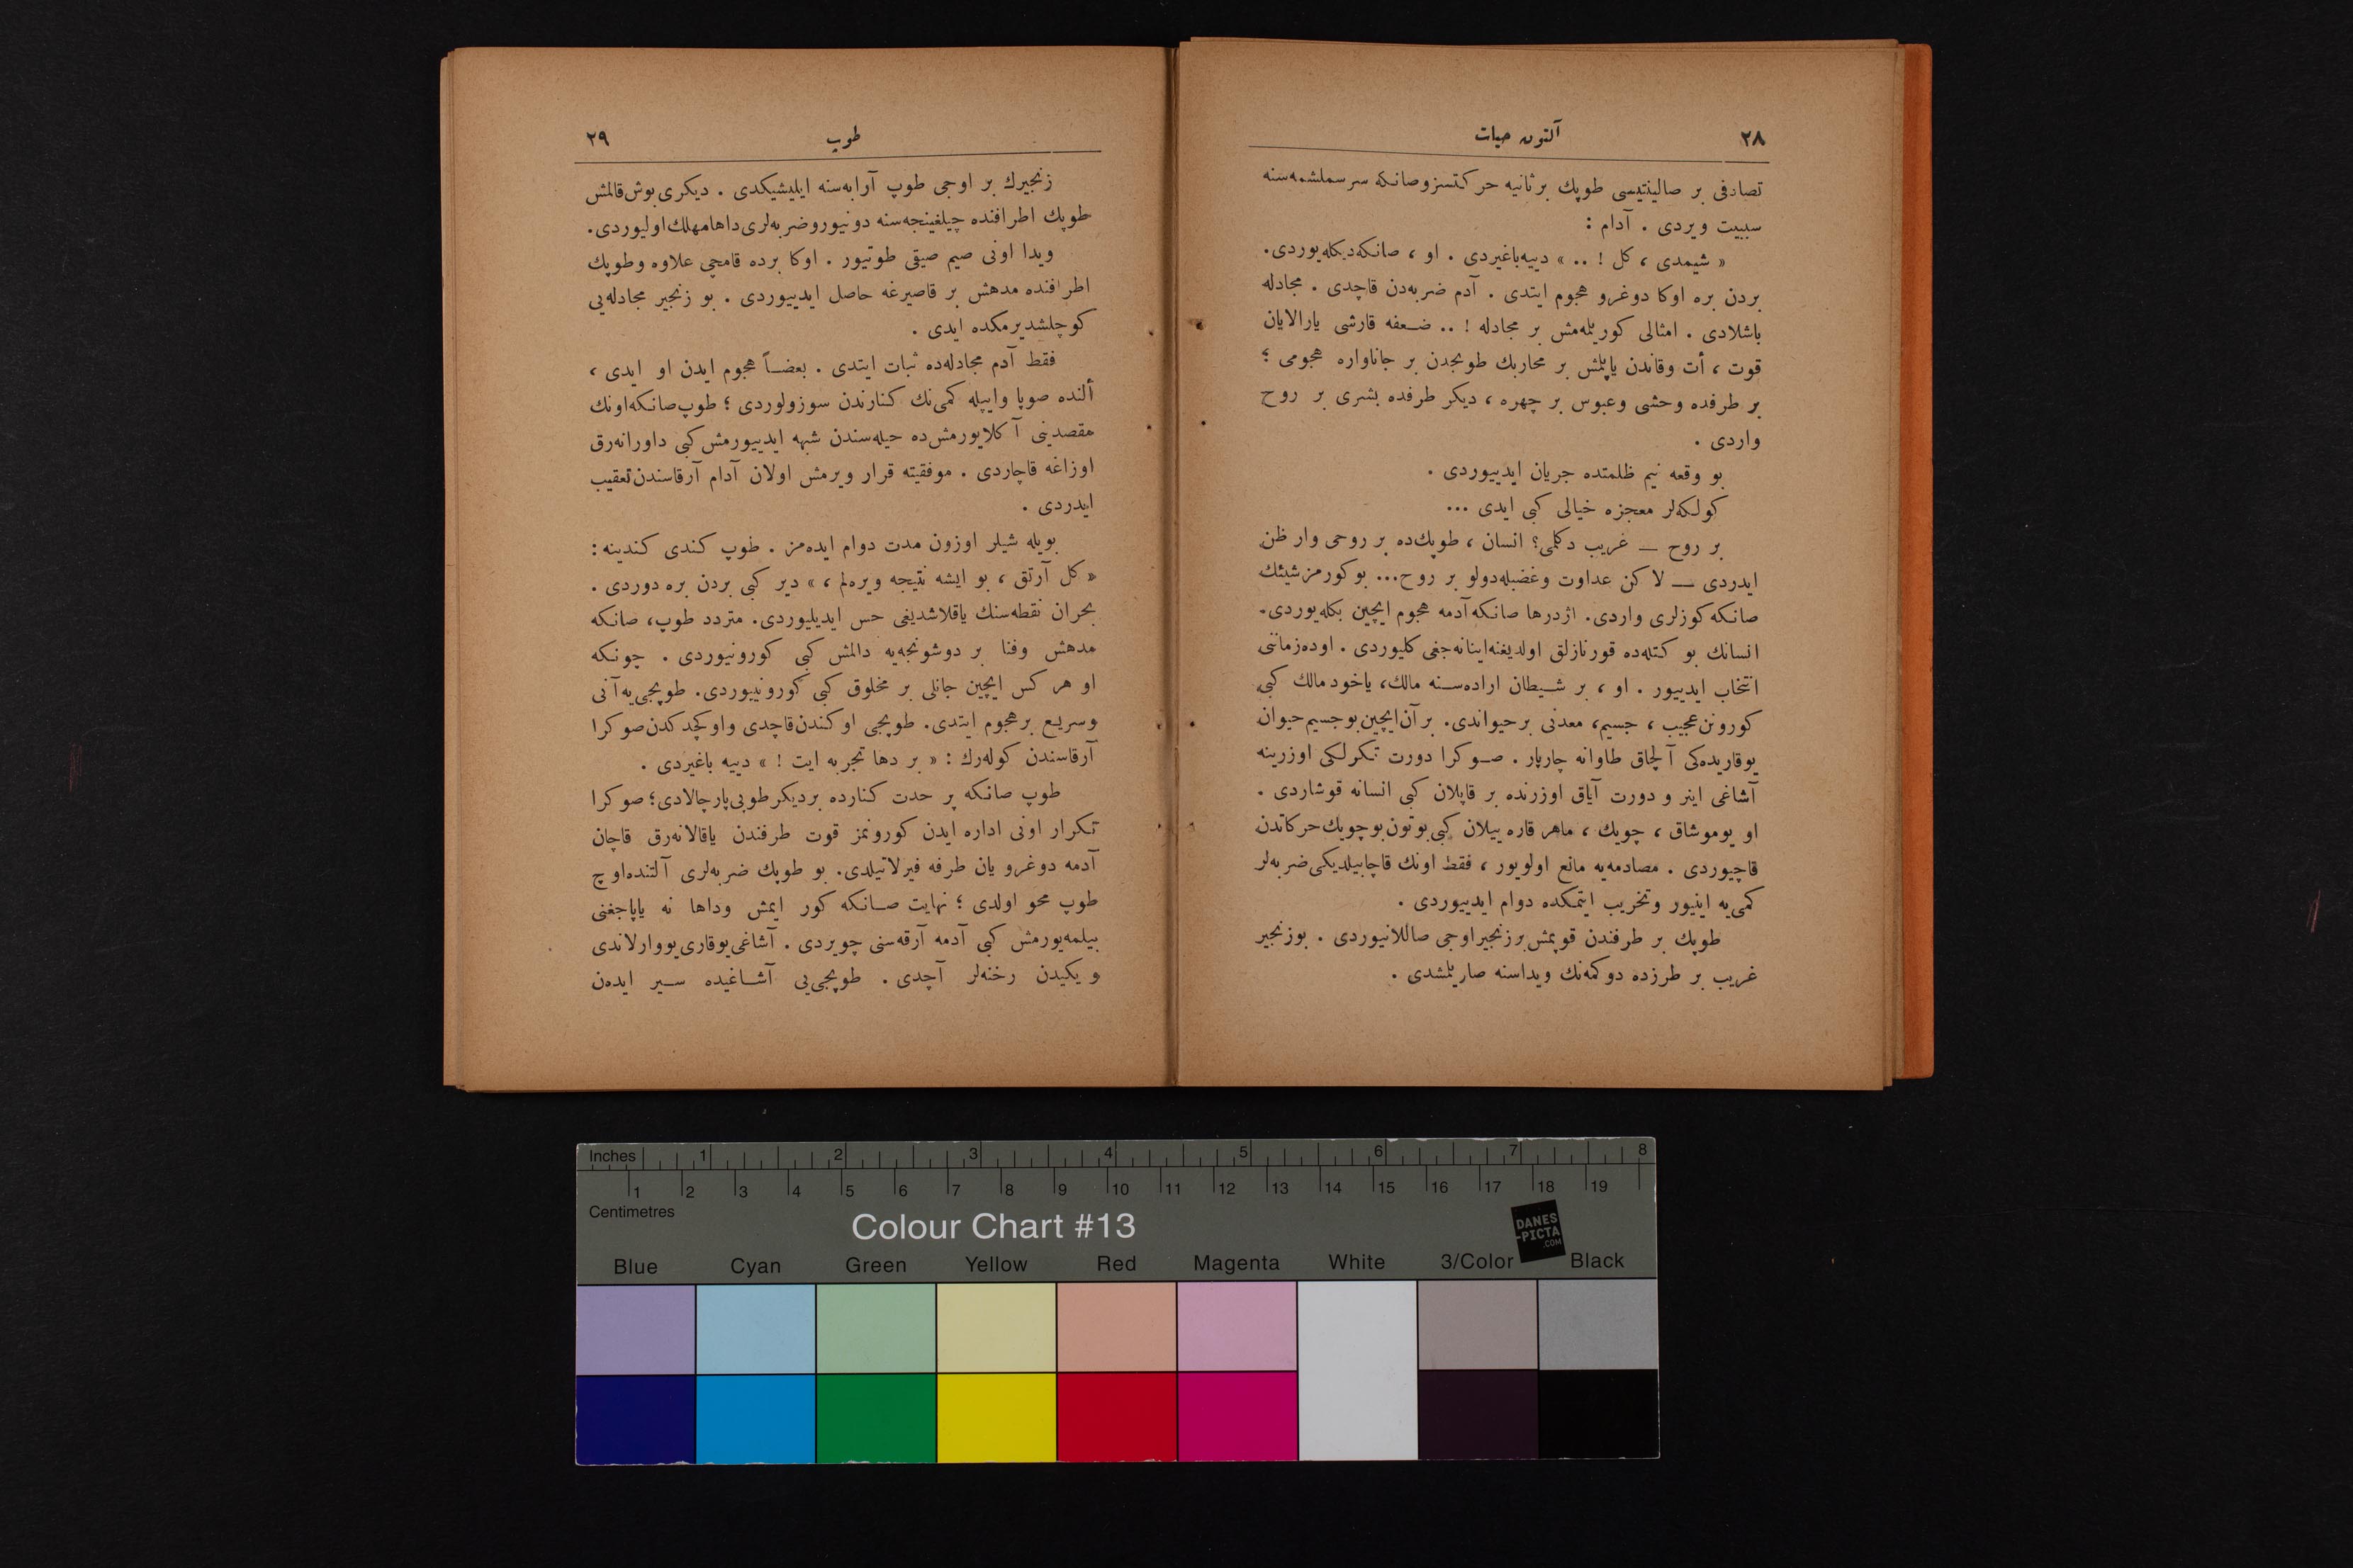 ٢٨
آلتون حیات
تصادفی بر صالینتیسی طوپك بر ثانیه حركتسز وصانكه سرسملشمه‌سنه
سببیت ویردی . آدام :
« شیمدی ، كل ! .. » دییه باغیردی . او ، صانكه دیكله‌یوردی.
بردن بره اوكا دوغرو هجوم ایتدی . آدم ضربه‌دن قاچدی . مجادله
باشلادی . امثالی كورلمه‌مش بر مجادله ! .. ضعفه قارشی یارالایان
قوت ، أت وقاندن یاپلمش بر محاربك طوبجدن بر جاناواره هجومی ؛
بر طرفده وحشی وعبوس بر چهره ، دیكر طرفده بشری بر روح
واردی .
بو وقعه نیم ظلمتده جریان ایدییوردی .
كولكه‌لر معجزه خیالی كبی ایدی ...
بر روح — غریب دكلمی؟ انسان ، طوپك‌ده بر روحی وار ظن
ایدردی — لاكن عداوت وغضبله‌دولو بر روح... بو كورمز شیئك
صانكه كوزلری واردی. اژدرها صانكه آدمه هجوم ایچین بكله‌یوردی.
انسانك بو كتله‌ده قورنازلق اولدیغنه اینانه‌جغی كلیوردی . اوده‌زماننی
انتخاب ایدییور . او ، بر شیطان اراده‌سنه مالك، یاخود مالك كبی
كورونن عجیب ، جسیم، معدنی بر حیواندی. بر آن ایچین بو جسیم حیوان
یوقاریده‌كی آلچاق طاوانه چارپار . صوكرا دورت تكرلكی اوزرینه
آشاغی اینر و دورت آیاق اوزرنده بر قاپلان كبی انسانه قوشاردی .
او یوموشاق ، چویك ، ماهر قاره ییلان كبی بوتون بو چویك حركاتدن
قاچیوردی . مصادمه‌یه مانع اولویور ، فقط اونك قاچابیلدیكی ضربه‌لر
كمی‌یه اینیور وتخریب ایتمكده دوام ایدییوردی .
طوپك بر طرفندن قوپمش بر زنجیر اوجی صاللانیوردی . بوزنجیر
غریب بر طرزده دوكمه‌نك ویداسنه صارلمشدی .
طوپ
٢٩
زنجیرك بر اوجی طوپ آرابه‌سنه ایلیشیكدی . دیكری بوش قالمش
طوپك اطرافنده چیلغینجه‌سنه دونیور وضربه‌لری داها مهلك اولیوردی.
ویدا اونی صیم صیقی طوتیور . اوكا برده قامچی علاوه وطوپك
اطرافنده مدهش بر قاصیرغه حاصل ایدییوردی . بو زنجیر مجادله‌یی
كوچلشدیرمكده ایدی .
فقط آدم مجادله‌ده ثبات ایتدی . بعضاً هجوم ایدن او ایدی ،
ألنده صوپا وایپله كمی‌نك كنارندن سوزولوردی ؛ طوپ صانكه اونك
مقصدینی آكلایورمش‌ده حیله‌سندن شبهه ایدییورمش كبی داورانه‌رق
اوزاغه قاچاردی . موفقیته قرار ویرمش اولان آدام آرقاسندن تعقیب
ایدردی .
بویله شیلر اوزون مدت دوام ایده‌مز . طوپ كندی كندینه :
« كل آرتق ، بو ایشه نتیجه ویره‌لم ، » دیر كبی بردن بره دوردی .
بحران نقطه‌سنك یاقلاشدیغی حس ایدیلیوردی. متردد طوپ، صانكه
مدهش وفنا بر دوشونجه‌یه دالمش كبی كورونیوردی . چونكه
او هر كس ایچین جانلی بر مخلوق كبی كورونییوردی. طوپجی‌یه آنی
وسریع بر هجوم ایتدی. طوپجی اوكندن قاچدی واو كچدكدن صوكرا
آرقاسندن كوله‌رك : « بر دها تجربه ایت ! » دییه باغیردی .
طوپ صانكه پر حدت كنارده بر دیكر طوپی پارچالادی؛ صوكرا
تكرار اونی اداره ایدن كورونمز قوت طرفندن یاقالانه‌رق قاچان
آدمه دوغرو یان طرفه فیرلاتیلدی. بو طوپك ضربه‌لری آلتنده اوچ
طوپ محو اولدی ؛ نهایت صانكه كور ایمش وداها نه یاپاجغنی
بیلمه‌یورمش كبی آدمه آرقه‌سنی چویردی . آشاغی یوقاری یووارلاندی
و یكیدن رخنه‌لر آچدی . طوپجی‌یی آشاغیده سیر ایده‌ن
Inches 1 2 3 4 5 6 7 8
1 2 3 4 5 6 7 8 9 10 11 12 13 14 15 16 17 18 19
Centimetres
Colour Chart #13
DANES
-PICTA
.COM
Blue Cyan Green Yellow Red Magenta White 3/Color Black